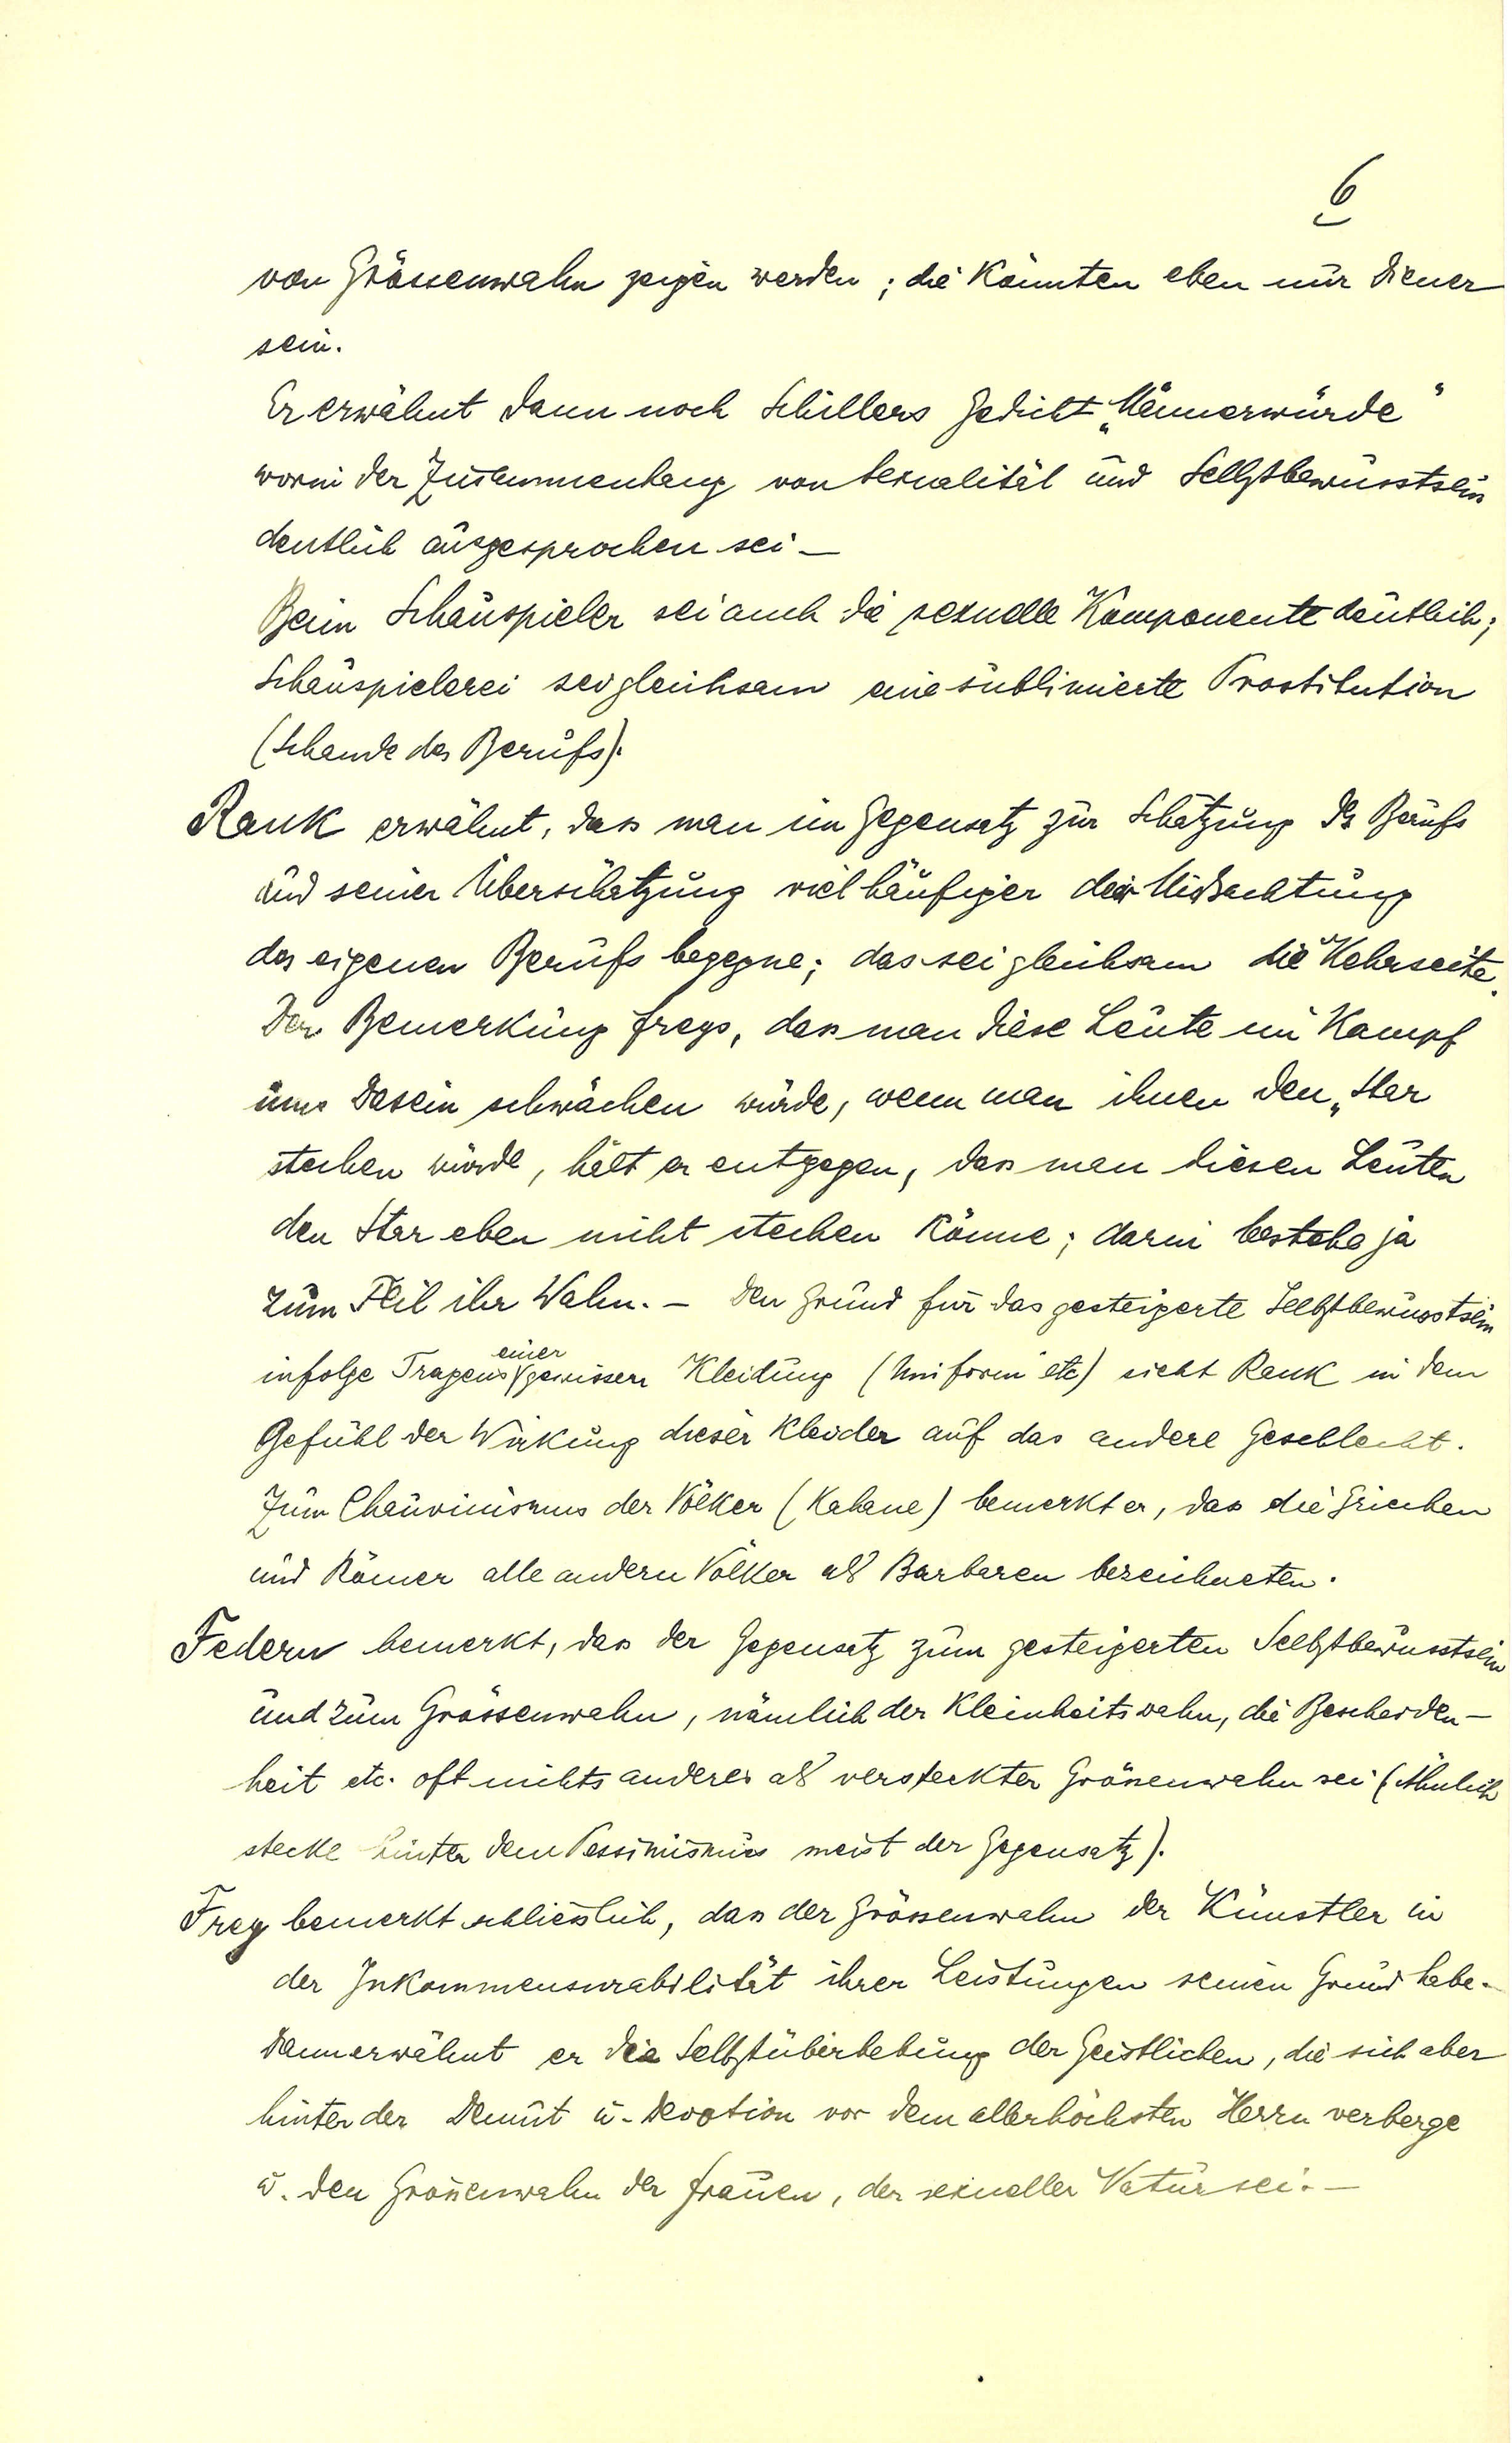 6
von Grössenwahn zeigen werden; die könnten eben nur Diener
sein.
Er erwähnt dann noch Schillers Gedicht „Männerwürde"
worin der Zusammenhang von Sexualität und Selbstbewusstsein
deutlich ausgesprochen sei –
Beim Schauspieler sei auch die sexuelle Komponente deutlich;
Schauspielerei sei gleichsam eine sublimierte Prostitution
(Schande des Berufs).
Rank erwähnt, dass man im Gegensatz zur Schätzung des Berufs
und seiner Überschätzung viel häufiger der Missachtung
des eigenen Berufs begegne; das sei gleichsam die Kehrseite.
Der Bemerkung Freys, dass man diese Leute im Kampf
ums Dasein schwächen würde, wenn man ihnen den „Star
stechen würde, hält er entgegen, dass man diesen Leuten
den Star eben nicht stechen könne; darin bestehe ja
zum Teil ihr Wahn. – Den Grund für das gesteigerte Selbstbewusstsein
infolge Tragens einer gewissen Kleidung (Uniform etc) sieht Rank in dem
Gefühl der Wirkung dieser Kleider auf das andere Geschlecht.
Zum Chauvinismus der Völker (Kahane) bemerkt er, dass die Griechen
und Römer alle andern Völker als Barbaren bezeichneten.
Federn bemerkt, dass der Gegensatz zum gesteigerten Selbstbewusstsein
und zum Grössenwahn, nämlich der Kleinheitswahn, die Bescheiden-
heit etc. oft nichts anderes als versteckter Grössenwahn sei (Ähnlich
stecke hinter dem Pessimismus meist der Gegensatz).
Frey bemerkt schliesslich, dass der Grössenwahn der Künstler in
der Inkommensurabilität ihrer Leistungen seinen Grund habe.
Dann erwähnt er die Selbstüberhebung der Geistlichen, die sich aber
hinter der Demut u. Devotion vor dem allerhöchsten Herrn verberge
u. den Grössenwahn der Frauen, der sexueller Natur sei. –